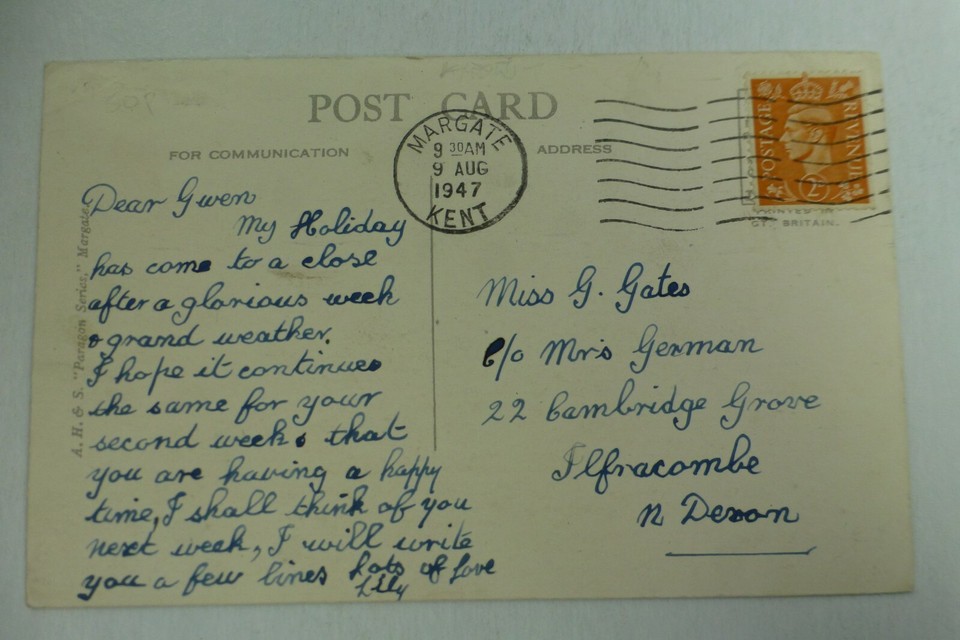 POST CARD
FOR COMMUNICATION
ADDRESS
MARGATE
9 30AM
9 AUG
1947
KENT
POSTAGE
REVENUE
2D
PRINTED IN
GT. BRITAIN.
A. H. & S. "Paragon Series," Margate
Dear Gwen
My Holiday
has come to a close
after a glorious week
& grand weather.
I hope it continues
the same for your
second week & that
you are having a happy
time, I shall think of you
next week, I will write
you a few lines Lots of Love
Lily
Miss G. Gates
c/o Mrs German
22 Cambridge Grove
Ilfracombe
N Devon